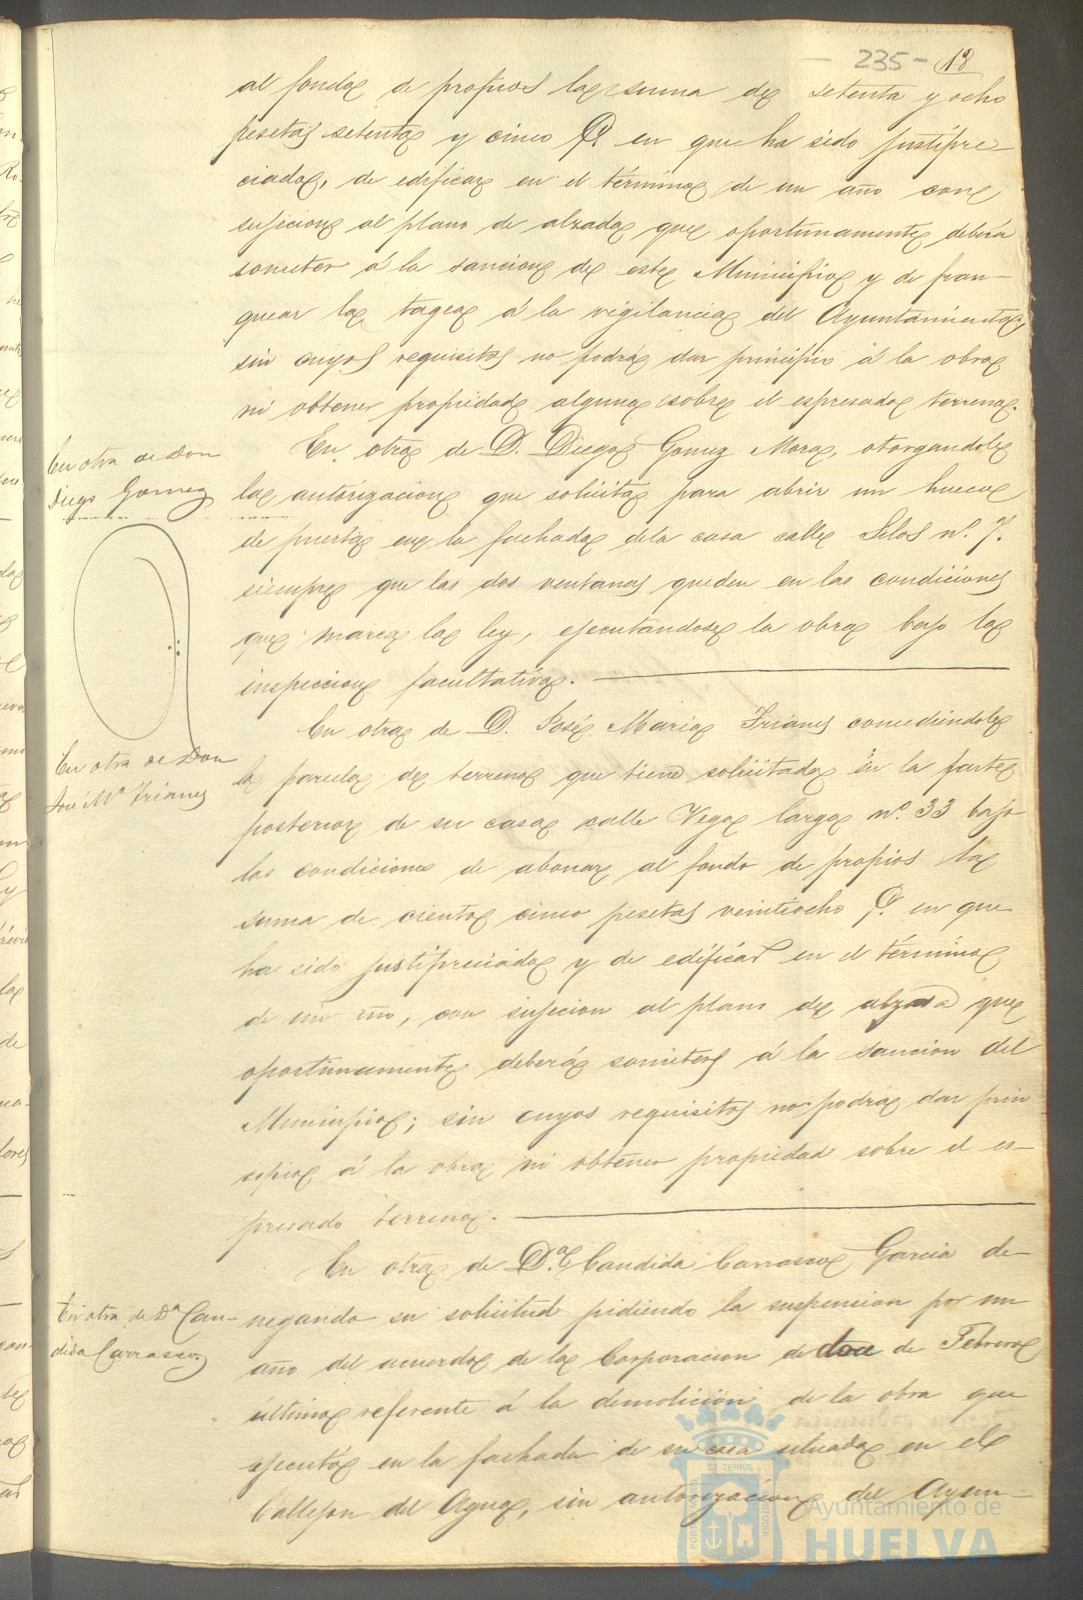 235 - 18
al fondo de propios la suma de setenta y ocho
pesetas setenta y cinco Cs. en que ha sido justipre-
ciada, de edificar en el término de un año con
sujecion al plano de alzada que oportunamente deberá
someter á la sancion de este Municipio y de fran-
quear la tagea á la vigilancia del Ayuntamiento,
sin cuyos requisitos no podrá dar principio á la obra
ni obtener propiedad alguna sobre el espresado terreno.
En otra de Don
Diego Gomez
En otra de D. Diego Gomez Mora, otorgandole
la autorizacion que solicita para abrir un hueco
de puerta en la fachada dela casa calle Silos nº. 7.
siempre que las dos ventanas queden en las condiciones
que marca la ley, ejecutandose la obra bajo la
inspeccion facultativa.
En otra de Don
José Mª Frianes
En otra de D. José Maria Frianes concediendole
la parcela de terreno que tiene solicitada en la parte
posterior de su casa calle Vega larga nº. 33 bajo
las condiciones de abonar al fondo de propios la
suma de ciento cinco pesetas veintiocho Cs. en que
ha sido justipreciada y de edificar en el término
de un año, con sujecion al plano de alzada que
oportunamente deberá someter á la sancion del
Municipio; sin cuyos requisitos no podrá dar prin
cipio á la obra ni obtener propiedad sobre el es-
presado terreno.
En otra de Dª Can-
dida Carrasco
En otra de Dª. Candida Carrasco Garcia de-
negando su solicitud pidiendo la suspension por un
año del acuerdo de la Corporacion de doce de Febrero
último referente á la demolicion de la obra que
ejecutó en la fachada de su casa situada en el
Callejon del Agua, sin autorizacion del Ayun-
Ayuntamiento de
HUELVA